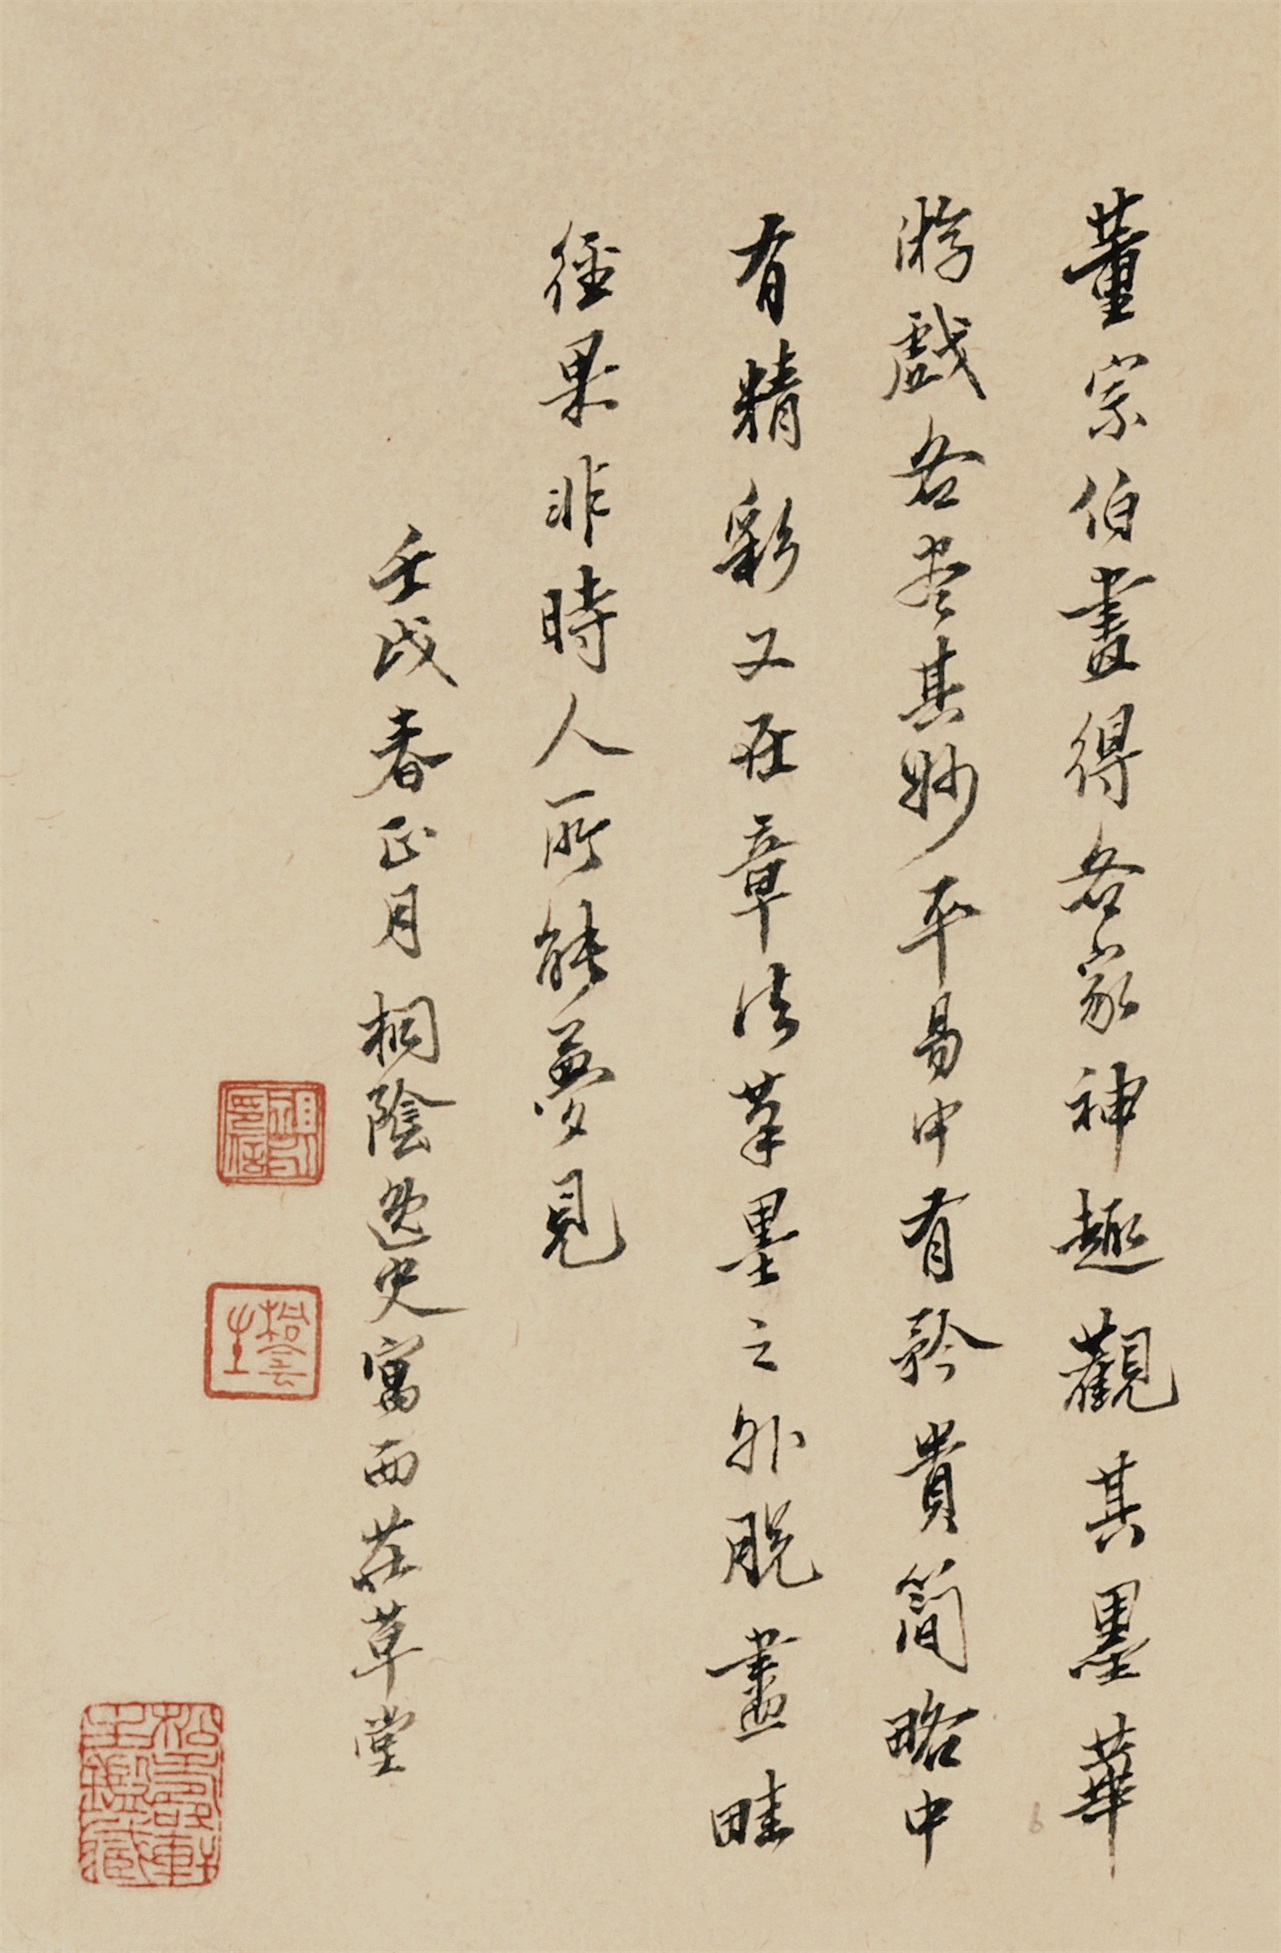 董宗伯畫得各家神趣觀其墨華
游戲各盡其妙平易中有矜貴簡略中
有精彩又在章法筆墨之外脫盡畦
徑果非時人所能夢見
壬戌春正月桐陰逸史寓西莊草堂
祖永印信